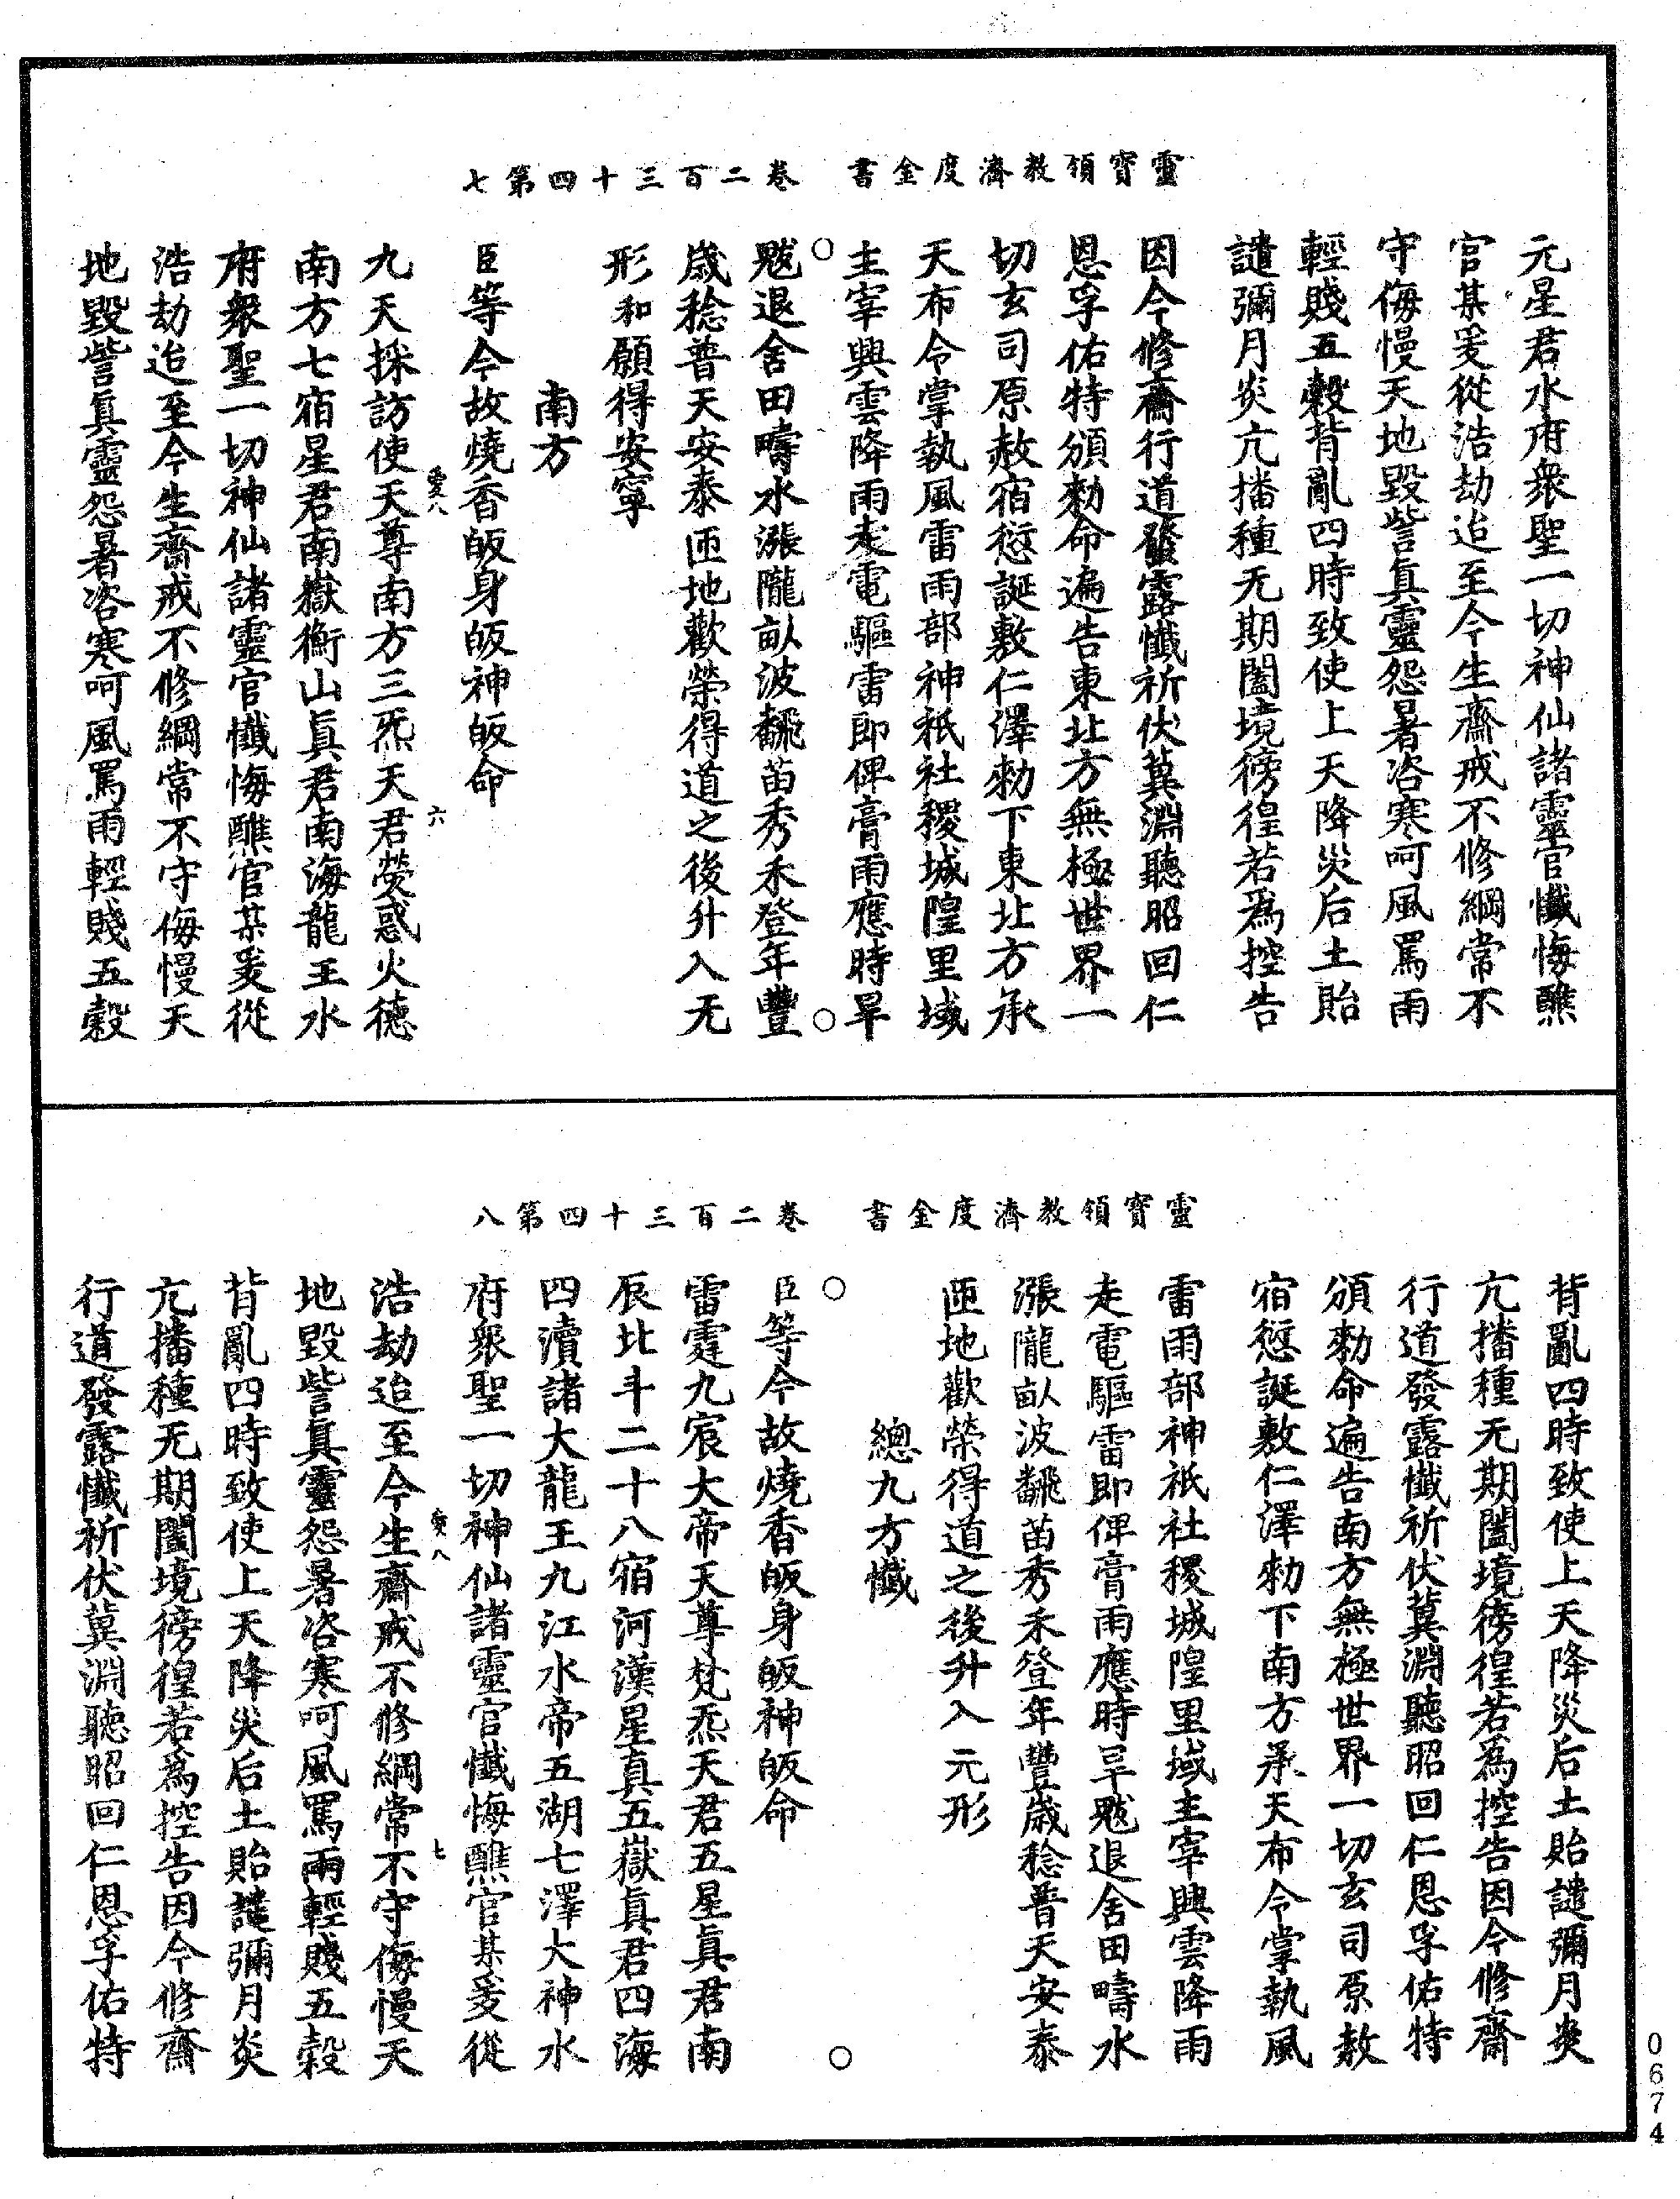 靈寶領教濟度金書　卷二百三十四第七
元星君水府衆聖一切神仙諸靈官懺悔醮
官某爰從浩劫迨至今生齋戒不修綱常不
守侮慢天地毀訾真靈怨暑咨寒呵風罵雨
輕賤五穀背亂四時致使上天降災后土貽
譴彌月炎亢播種无期闔境徬徨若為控告
因今修齋行道發露懺祈伏冀淵聽昭回仁
恩孚佑特頒勑命遍告東北方無極世界一
切玄司原赦宿愆誕敷仁澤勑下東北方承
天布令掌執風雷雨部神祇社稷城隍里域
主宰興雲降雨走電驅雷即俾膏雨應時旱
魃退舍田疇水漲隴畝波飜苗秀禾登年豐
歲稔普天安泰匝地歡榮得道之後升入无
形和願得安寧
南方
臣等今故燒香皈身皈神皈命
九天採訪使天尊南方三炁天君熒惑火德
南方七宿星君南嶽衡山真君南海龍王水
府衆聖一切神仙諸靈官懺悔醮官某爰從
浩劫迨至今生齋戒不修綱常不守侮慢天
地毀訾真靈怨暑咨寒呵風罵雨輕賤五穀
愛八
六
靈寶領教濟度金書　卷二百三十四第八
背亂四時致使上天降災后土貽譴彌月炎
亢播種无期闔境徬徨若為控告因今修齋
行道發露懺祈伏冀淵聽昭回仁恩孚佑特
頒勑命遍告南方無極世界一切玄司原赦
宿愆誕敷仁澤勑下南方承天布令掌執風
雷雨部神祇社稷城隍里域主宰興雲降雨
走電驅雷即俾膏雨應時旱魃退舍田疇水
漲隴畝波飜苗秀禾登年豐歲稔普天安泰
匝地歡榮得道之後升入元形
總九方懺
臣等今故燒香皈身皈神皈命
雷霆九宸大帝天尊梵炁天君五星真君南
辰北斗二十八宿河漢星真五嶽真君四海
四瀆諸大龍王九江水帝五湖七澤大神水
府衆聖一切神仙諸靈官懺悔醮官某爰從
浩劫迨至今生齋戒不修綱常不守侮慢天
地毀訾真靈怨暑咨寒呵風罵雨輕賤五穀
背亂四時致使上天降災后土貽譴彌月炎
亢播種无期闔境徬徨若為控告因今修齋
行道發露懺祈伏冀淵聽昭回仁恩孚佑特
愛八
七
0674